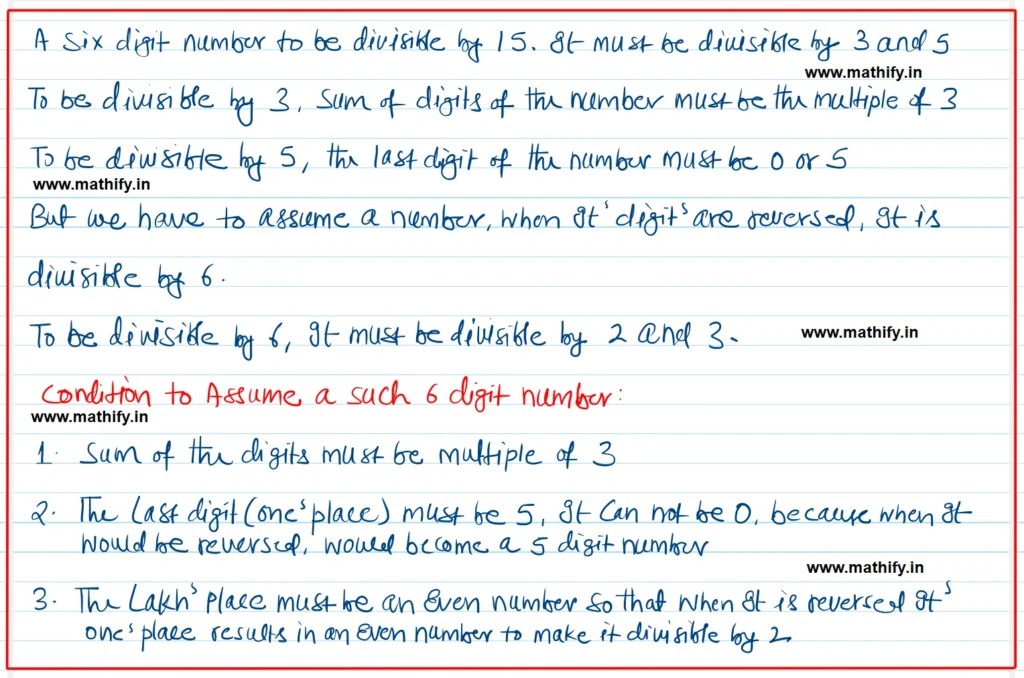 A six digit number to be divisible by 15. It must be divisible by 3 and 5
www.mathify.in
To be divisible by 3, sum of digits of the number must be the multiple of 3
To be divisible by 5, the last digit of the number must be 0 or 5
www.mathify.in
But we have to assume a number, when It's digits are reversed, It is
divisible by 6.
To be divisible by 6, It must be divisible by 2 and 3.
www.mathify.in
Condition to Assume a such 6 digit number:
www.mathify.in
1. Sum of the digits must be multiple of 3
2. The Last digit (one's place) must be 5, It Can not be 0, because when It
would be reversed, would become a 5 digit number
www.mathify.in
3. The Lakh's place must be an Even number so that when It is reversed It's
one's place results in an Even number to make it divisible by 2